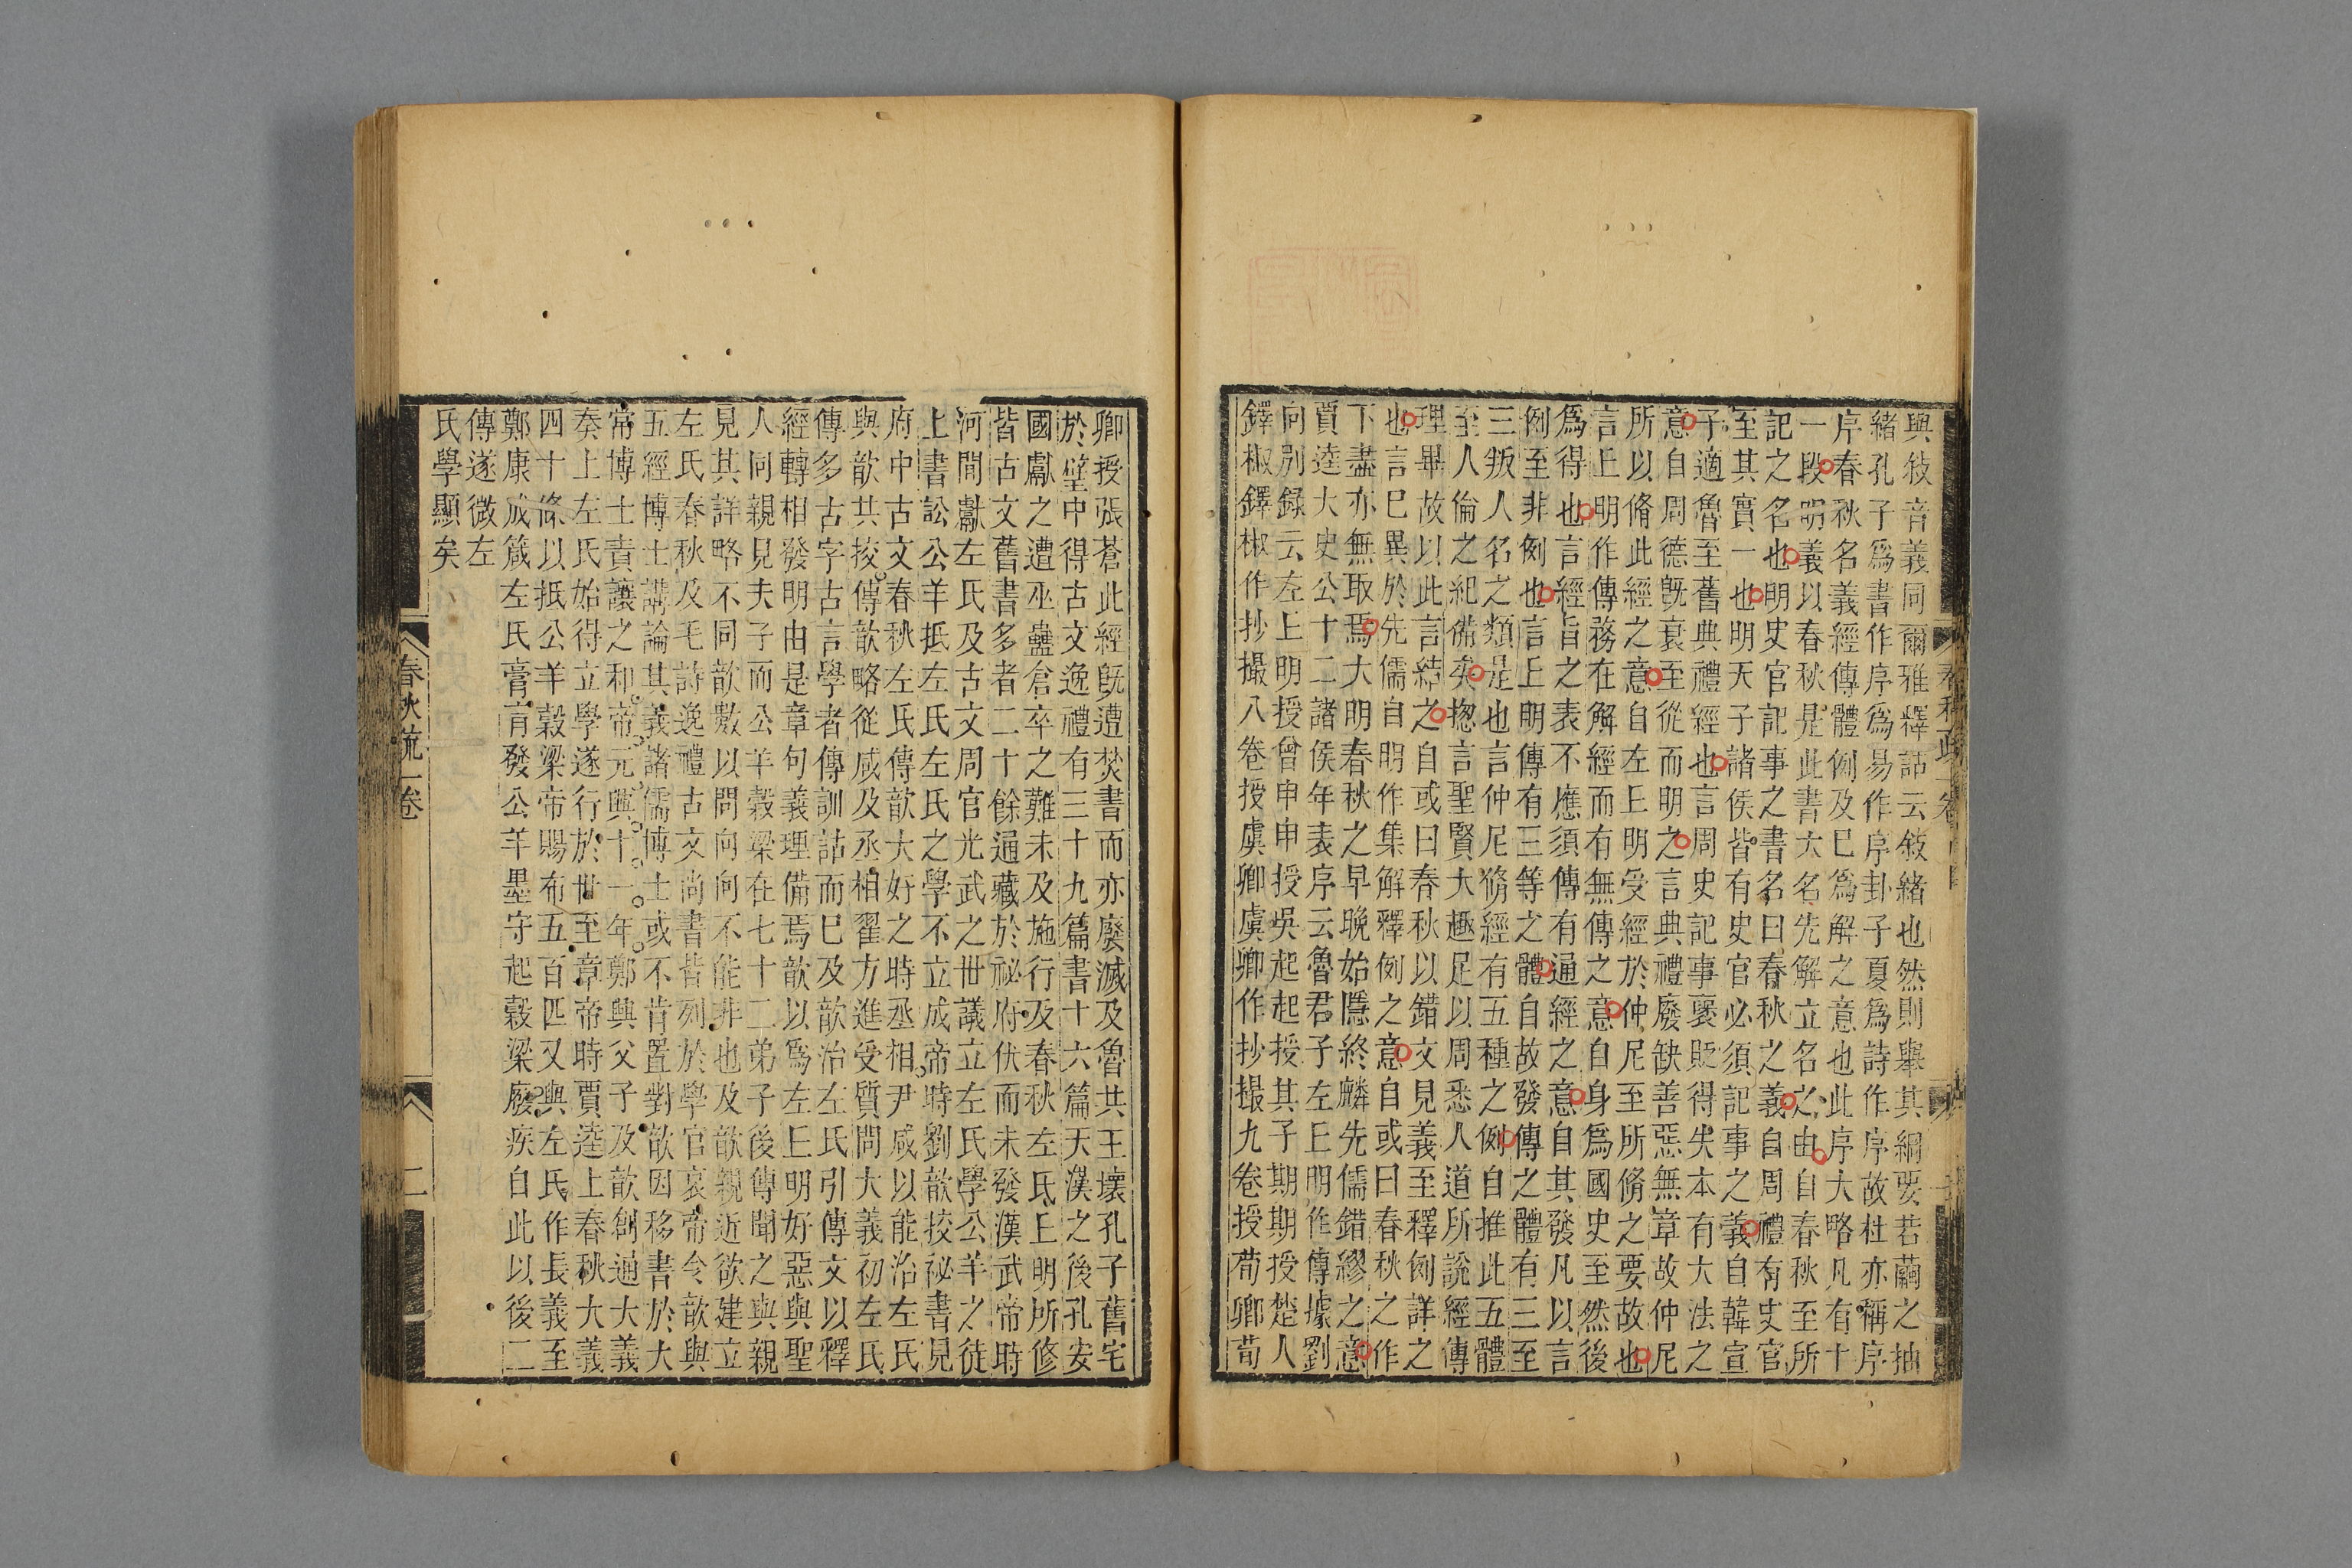 與敍音義同爾雅釋詁云敍緒也然則舉其綱要若繭之抽
緒孔子爲書作序爲易作序卦子夏爲詩作序故杜亦稱序
序春秋名義經傳體例及巳爲解之意也此序大略凡有十
一段明義以春秋是此書大名先解立名之由自春秋至所
記之名也明史官記事之書名曰春秋之義自周禮有史官
至其實一也明天子諸侯皆有史官必須記事之義自韓宣
子適魯至舊典禮經也言周史記事褒貶得失本有大法之
意自周德旣衰至從而明之言典禮廢缺善惡無章故仲尼
所以脩此經之意自左丘明受經於仲尼至所脩之要故也
言丘明作傳務在解經而有無傳之意自身爲國史至然後
爲得也言經旨之表不應須傳有通經之意自其發凡以言
例至非例也言丘明傳有三等之體自故發傳之體有三至
三叛人名之類是也言仲尼脩經有五種之例自推此五體
至人倫之紀備矣揔言聖賢大趣足以周悉人道所說經傳
理畢故以此言結之自或曰春秋以錯文見義至釋例詳之
也言巳異於先儒自明作集解釋例之意自或曰春秋之作
下盡亦無取焉大明春秋之早晚始隱終麟先儒錯繆之意
賈逵大史公十二諸侯年表序云魯君子左丘明作傳據劉
向別錄云左丘明授曾申申授吳起起授其子期期授楚人
鐸椒鐸椒作抄撮八卷授虞卿虞卿作抄撮九卷授荀卿荀
卿授張蒼此經旣遭焚書而亦廢滅及魯共王壞孔子舊宅
於壁中得古文逸禮有三十九篇書十六篇天漢之後孔安
國獻之遭巫蠱倉卒之難未及施行及春秋左氏丘明所修
皆古文舊書多者二十餘通藏於祕府伏而未發漢武帝時
河間獻左氏及古文周官光武之世議立左氏學公羊之徒
上書訟公羊抵左氏左氏之學不立成帝時劉歆挍祕書見
府中古文春秋左氏傳歆大好之時丞相尹咸以能治左氏
與歆共挍傳歆略從咸及丞相翟方進受質問大義初左氏
傳多古字古言學者傳訓詁而巳及歆治左氏引傳文以釋
經轉相發明由是章句義理備焉歆以爲左丘明好惡與聖
人同親見夫子而公羊穀梁在七十二弟子後傳聞之與親
見其詳略不同歆數以問向向不能非也及歆親近欲建立
左氏春秋及毛詩逸禮古文尚書皆列於學官哀帝令歆與
五經博士講論其義諸儒博士或不肯置對歆因移書於大
常博士責讓之和帝元興十一年鄭興父子及歆創通大義
奏上左氏始得立學遂行於世至章帝時賈逵上春秋大義
四十條以抵公羊穀梁帝賜布五百匹又與左氏作長義至
鄭康成箴左氏膏肓發公羊墨守起穀梁廢疾自此以後二
傳遂微左
氏學顯矣
春秋疏一卷
二